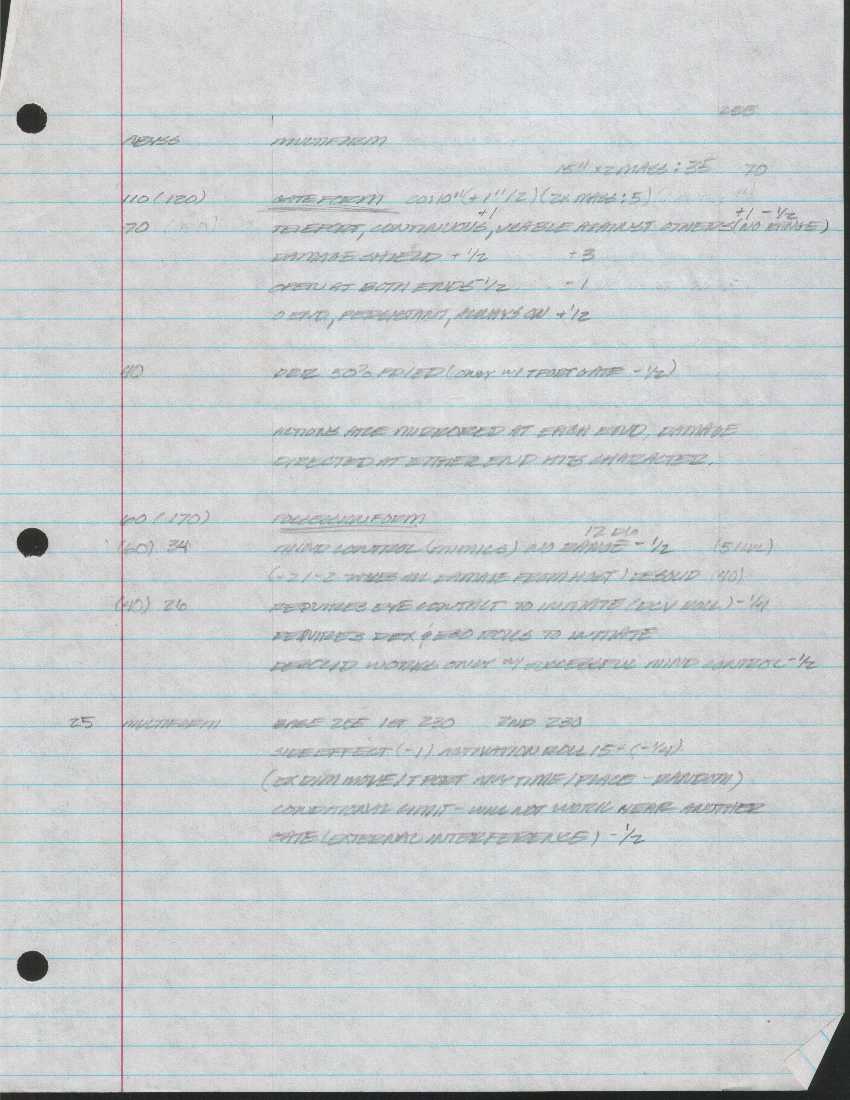 ABYSS MULTIFORM
15" x2 MASS: 35 70
110 (120) GATE FORM 10" (+1"/2) (2x MASS: 5)
+1 +1 -1/2
70 TELEPORT, CONTINUOUS, USABLE AGAINST OTHERS (NO RANGE)
DAMAGE SHIELD +1/2 +3
OPEN AT BOTH ENDS -1/2 -1
0 END, PERSISTANT, ALWAYS ON +1/2
40 50% PD/ED (ONLY W/ TPORT GATE -1/2)
ACTIONS ARE MIRRORED AT EACH END. DAMAGE
DIRECTED AT EITHER END HITS CHARACTER.
60 (170) POSSESSION FORM
(60) 34 MIND CONTROL (MIMICS) NO RANGE -1/2
TAKES ALL DAMAGE FROM HOST) DESOLID (40)
(40) 26 REQUIRES EYE CONTACT TO INITIATE (DCV ROLL) -1/4
REQUIRES DEX & EGO ROLLS TO INITIATE
DESOLID WORKS ONLY W/ SUCCESSFUL MIND CONTROL -1/2
25 MULTIFORM BASE 1ST 230 2ND 230
SIDE EFFECT (-1) ACTIVATION ROLL 15- (-1/4)
(EX DIM MOVE/TPORT ANY TIME/PLACE - RANDOM)
CONDITIONAL LIMIT - WILL NOT WORK NEAR ANOTHER
GATE (EXTERNAL INTERFERENCE) -1/2